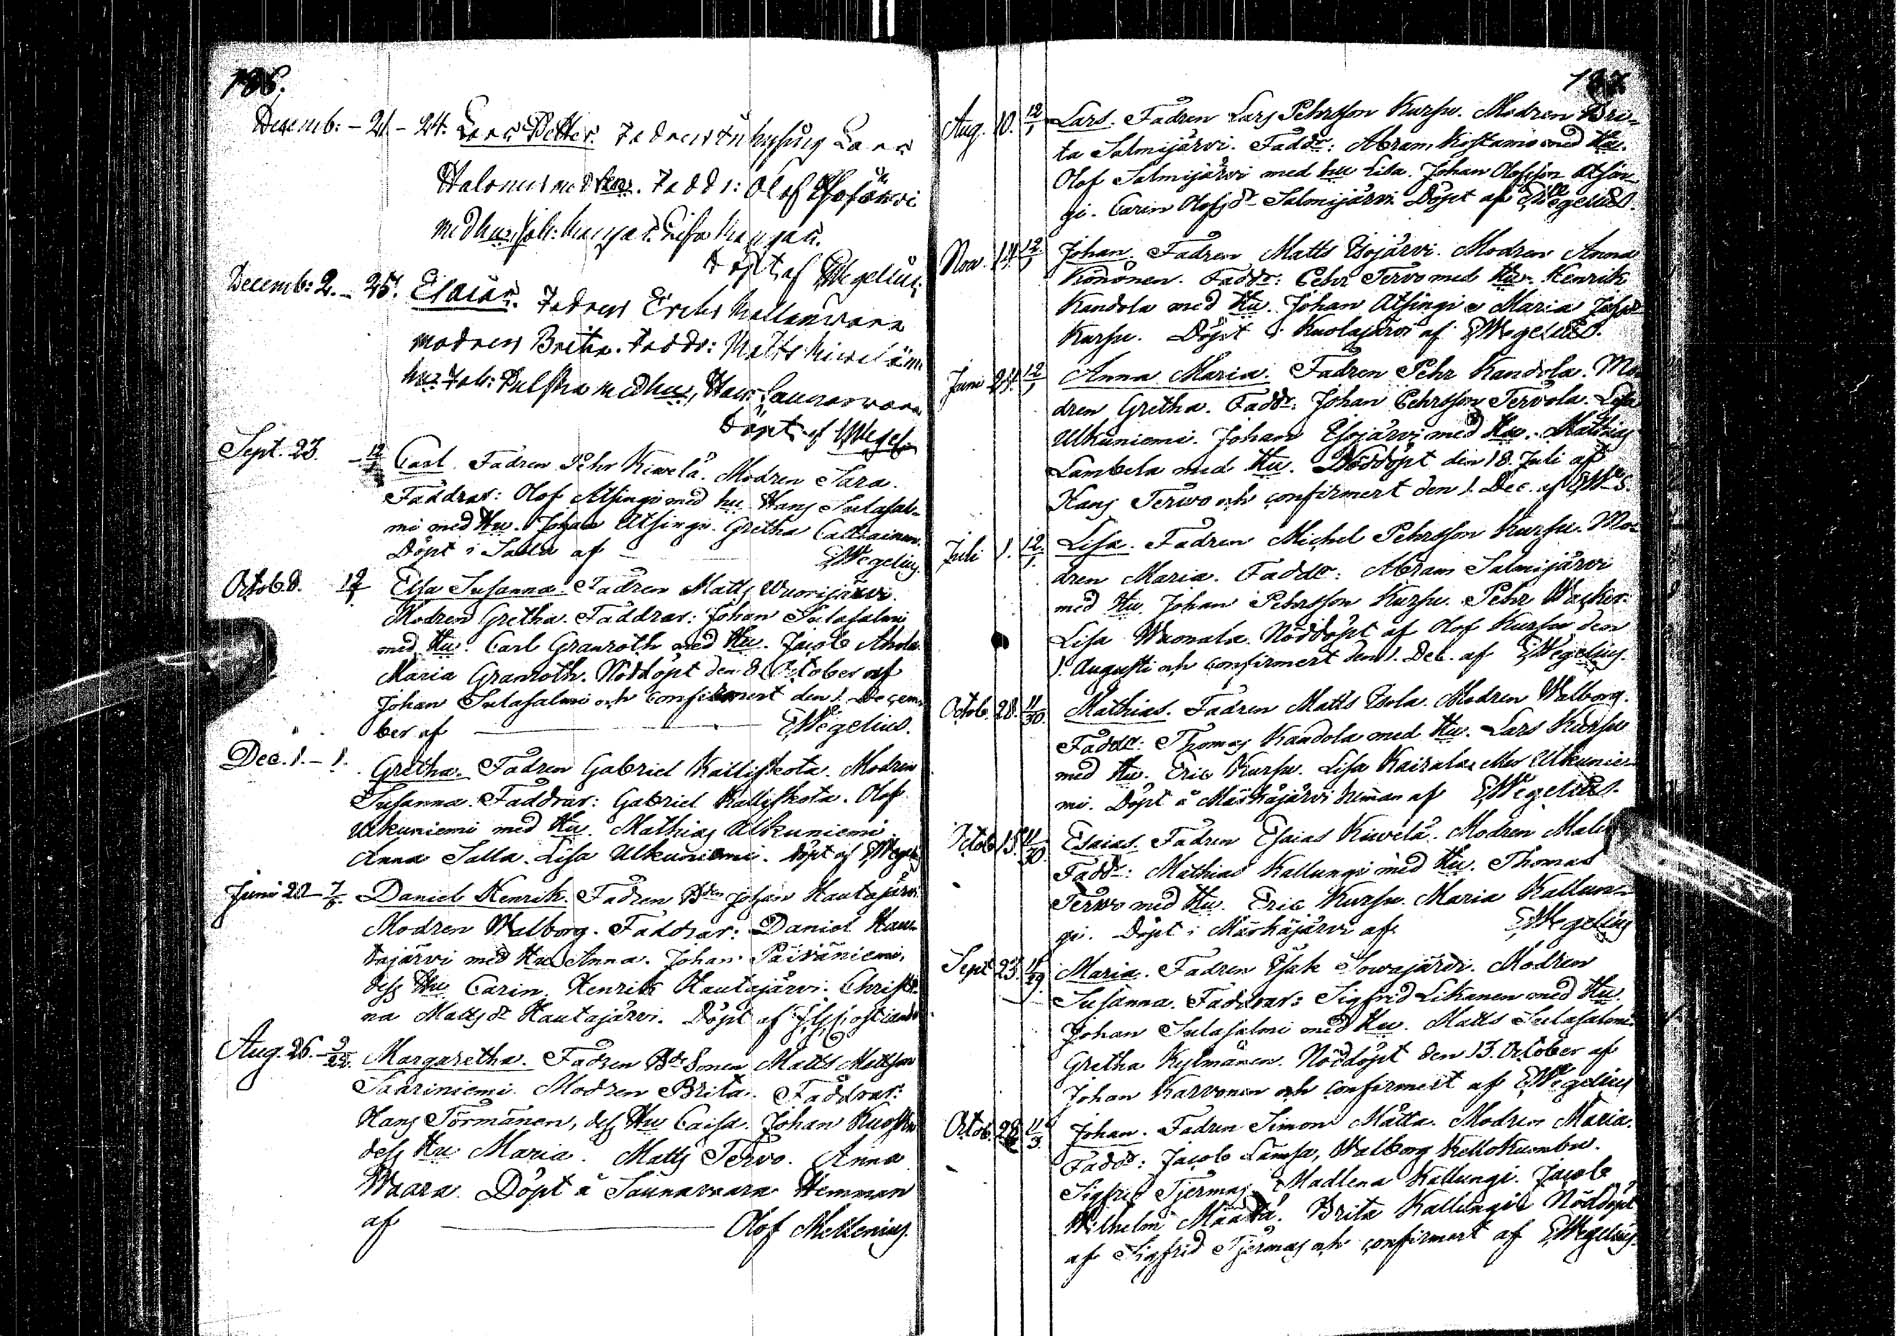 186.
Decemb: - 21 - 24. Lars Petter. Fadren Inhysing Lars
Halonen med hu. Faddr: Olof Isojärvi
med hu,
döpt af EWegelius
Decemb: 2. - 25. Esaias. Fadren Erik Kallunvaara
modren Britha. Faddr: Matts Kiwelä m
hu, med hu, Saunavaara
Döpt af EWegel
Sept. 23. - 12/1 Carl. Fadren Pehr Kiwelä. Modren Sara.
Faddrar: Olof Alsingi med hu. Hans Sulasal-
mi med Hu. Johan Alsingi. Gretha Callainen.
Döpt i Salla af EWegelius.
Octob. 8. 12/1 Elsa Susanna. Fadren Matts Wuorijärvi.
Modren Gretha. Faddrar: Johan Sulasalmi
med Hu. Carl Granroth med Hu. Jacob
Maria Granroth. Nöddöpt den 8. October af
Johan Sulasalmi och confirmert den 1. Decem-
ber af EWegelius.
Dec. 1. - 1. Gretha. Fadren Gabriel Kalliskota. Modren
Susanna. Faddrar: Gabriel Kalliskota. Olof
Ulkuniemi med Hu. Mathias Ulkuniemi.
Anna Salla. Lisa Ulkuniemi. Döpt af EWegel
Junii 22 - 7/6. Daniel Henrik. Fadren Bden Johan Hautajärvi.
Modren Walborg. Faddrar: Daniel Hau-
tajärvi med Hu Anna. Johan Päiväniemi,
dess Hu Carin. Henrik Hautajärvi. Christi-
na Mattsdr Hautajärvi. Döpt af
Aug. 26. - 9/22. Margaretha. Fadren Bde Sonen Matts Mattson
Saariniemi. Modren Brita. Faddrar:
Hans Törmänen, dess Hu Caisa. Johan
dess Hu Maria. Matts Tervo. Anna
Waara. Döpt å Saunavaara Hemman
af Olof Mellenius.
187.
Aug. 10. 12/1 Lars. Fadren Lars Pehrsson Kursu. Modren Bri-
ta Salmijärvi. Faddr: Abram Kostamo med Hu.
Olof Salmijärvi med hu Lisa. Johan Olofsson Alsin-
gi. Carin Olofsdr Salmijärvi. Döpt af EWegelius.
Nov. 14. 12/1 Johan. Fadren Matts Isojärvi. Modren Anna
Kronönen. Faddr: Pehr Tervo med Hu. Henrik
Kandola med Hu. Johan Alsingi o Maria
Kursu. Döpt i Kuolajärvi af EWegelius.
Juni 24. 12/1 Anna Maria. Fadren Pehr Kandola. Mo-
dren Gretha. Faddr: Johan Pehrsson Tervola. Lisa
Ulkuniemi. Johan Isojärvi med Hu. Mathias
Lambela med Hu. Nöddöpt den 18. Juli af
Hans Terwo och confirmert den 1. Dec. af EW-s.
Juli 1. 12/1. Lisa. Fadren Michel Pehrsson Kursu. Mo-
dren Maria. Faddr: Abram Salmijärvi
med Hu. Johan Pehrsson Kursu. Pehr
Lisa Wuonala. Nöddöpt af Olof Kursu den
1. Augusti och confirmert den 1. Dec. af EWegelius.
Octob. 28. 11/30. Mathias. Fadren Matts Isola. Modren Walborg.
Faddr: Thomas Kandola med Hu. Lars Kursu
med Hu. Eric Kursu. Lisa Kairala. Ulkunie-
mi. Döpt å Märkäjärvi heman af EWegelius.
Octob 15 11/30 Esaias. Fadren Esaias Kiwelä. Modren
Faddr: Mathias Kallungi med Hu. Thomas
Terwo med Hu. Eric Kursu. Maria Kallun-
gi. Döpt i Märkäjärvi af EWegelius
Sept. 23. 11/29. Maria. Fadren Isak Sowajärvi. Modren
Susanna. Faddrar: Sigfrid Likanen med Hu.
Johan Sulasalmi med Hu. Matts Sulasalmi.
Gretha Kylmänen. Nöddöpt den 13. October af
Johan Karvonen och confirmert af EWegelius
Octob. 28 11/3. Johan. Fadren Simon Mätta. Modren Maria.
Faddr: Jacob Lämsä, Walborg Kellokumbu.
Sigfrid Tjermas. Madlena Kallungi. Jacob
Wilhelm Määttä. Brita Kallungi. Nöddöpt
af Sigfrid Tjermas och confirmert af EWegelius.